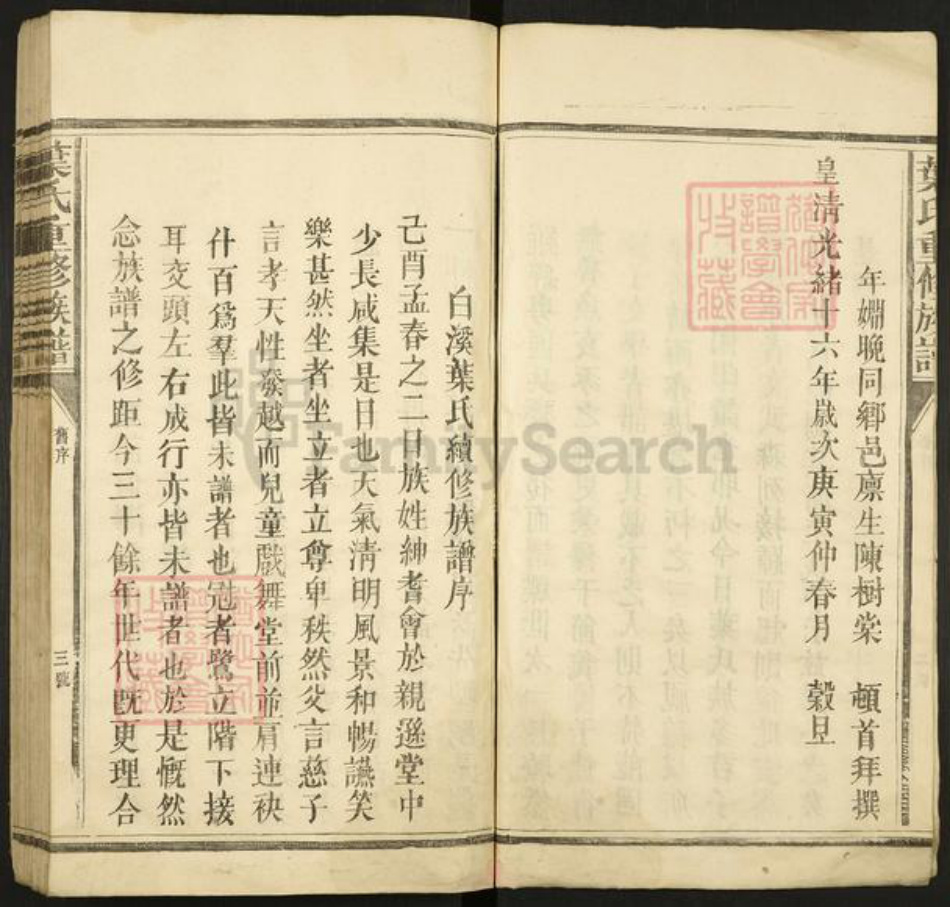 葉氏重修族譜
年姻晚同鄉邑廩生陳樹棠　頓首拜撰
皇清光緒十六年歲次庚寅仲春月　穀旦
白溪葉氏續修族譜序
己酉孟春之二日族姓紳耆會於親遜堂中
少長咸集是日也天氣清明風景和暢讌笑
樂甚然坐者坐立者立尊卑秩然父言慈子
言孝天性發越而兒童戲舞堂前並肩連袂
什百為羣此皆未譜者也冠者鷺立階下接
耳交頭左右成行亦皆未譜者也於是慨然
念族譜之修距今三十餘年世代既更理合
葉氏重修族譜
舊序
三號
FamilySearch